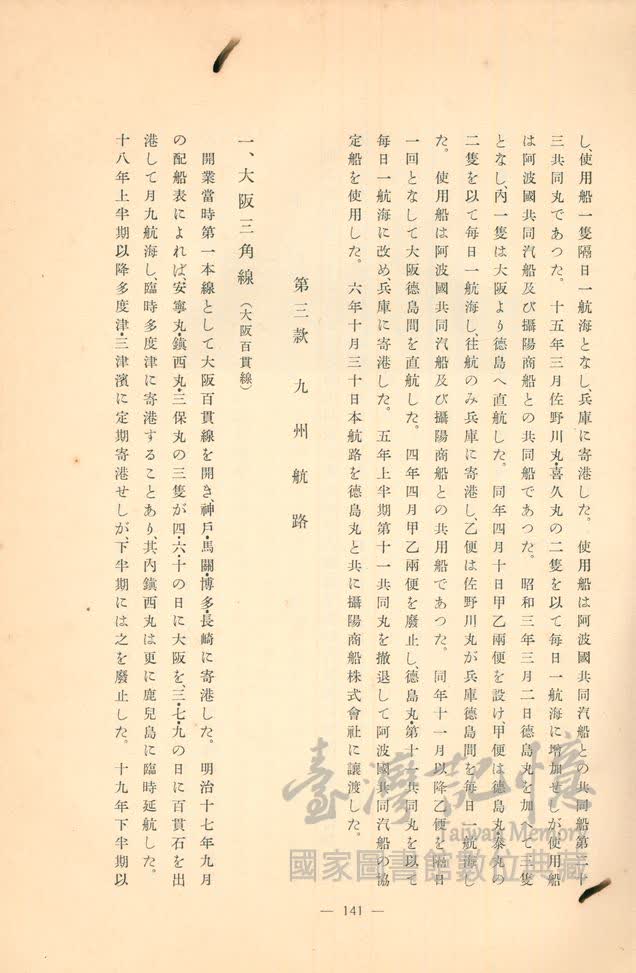 し、使用船一隻隔日一航海となし、兵庫に寄港した。 使用船は阿波國共同汽船との共同船第二十
三共同丸であつた。 十五年三月佐野川丸・喜久丸の二隻を以て毎日一航海に增加せしが使用船
は阿波國共同汽船及び攝陽商船との共同船であつた。 昭和三年三月二日德島丸を加へて三隻
となし、內一隻は大阪より德島へ直航した。 同年四月十日甲乙兩便を設け、甲便は德島丸・泰丸の
二隻を以て毎日一航海し、往航のみ兵庫に寄港し、乙便は佐野川丸が兵庫德島間を毎日一航海し
た。 使用船は阿波國共同汽船及び攝陽商船との共用船であつた。 同年十一月以降乙便を隔日
一回となして大阪德島間を直航した。 四年四月甲乙兩便を廢止し、德島丸・第十一共同丸を以て
毎日一航海に改め、兵庫に寄港した。 五年上半期第十一共同丸を撤退して阿波國共同汽船の協
定船を使用した。 六年十月三十日本航路を德島丸と共に攝陽商船株式會社に讓渡した。
第三款 九州航路
一、大阪三角線（大阪百貫線）
開業當時第一本線として大阪百貫線を開き、神戶・馬關・博多・長崎に寄港した。 明治十七年九月
の配船表によれば、安寧丸・鎭西丸・三保丸の三隻が四・六・十の日に大阪を、三・七・九の日に百貫石を出
港して月九航海し、臨時多度津に寄港することあり、其內鎭西丸は更に鹿兒島に臨時延航した。
十八年上半期以降多度津・三津濱に定期寄港せしが、下半期には之を廢止した。 十九年下半期以
— 141 —
臺灣記憶
Taiwan Memory
國家圖書館數位典藏